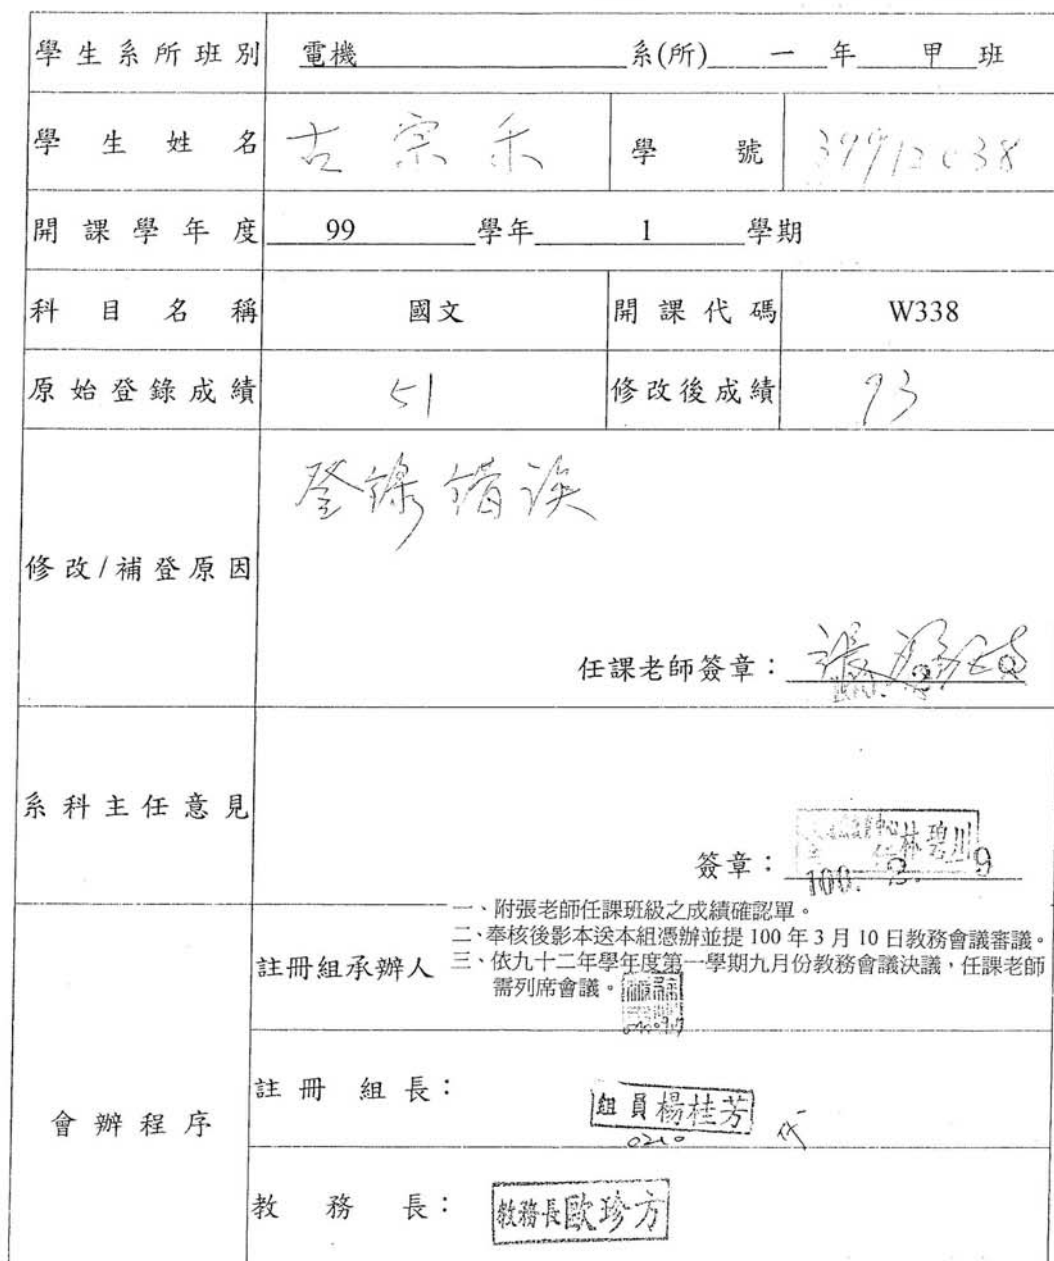 學生系所班別 電機 系(所) 一 年 甲 班
學生姓名 古宗禾 學號
開課學年度 99 學年 1 學期
科目名稱 國文 開課代碼 W338
原始登錄成績 51 修改後成績 93
登錄錯誤
修改/補登原因
任課老師簽章：張
系科主任意見
中心
林碧川
簽章：100. 3. 9
一、附張老師任課班級之成績確認單。
二、奉核後影本送本組憑辦並提 100 年 3 月 10 日教務會議審議。
註冊組承辦人 三、依九十二年學年度第一學期九月份教務會議決議，任課老師
需列席會議。
註冊組長：組員楊桂芳 代
會辦程序
教務長：教務長歐珍方